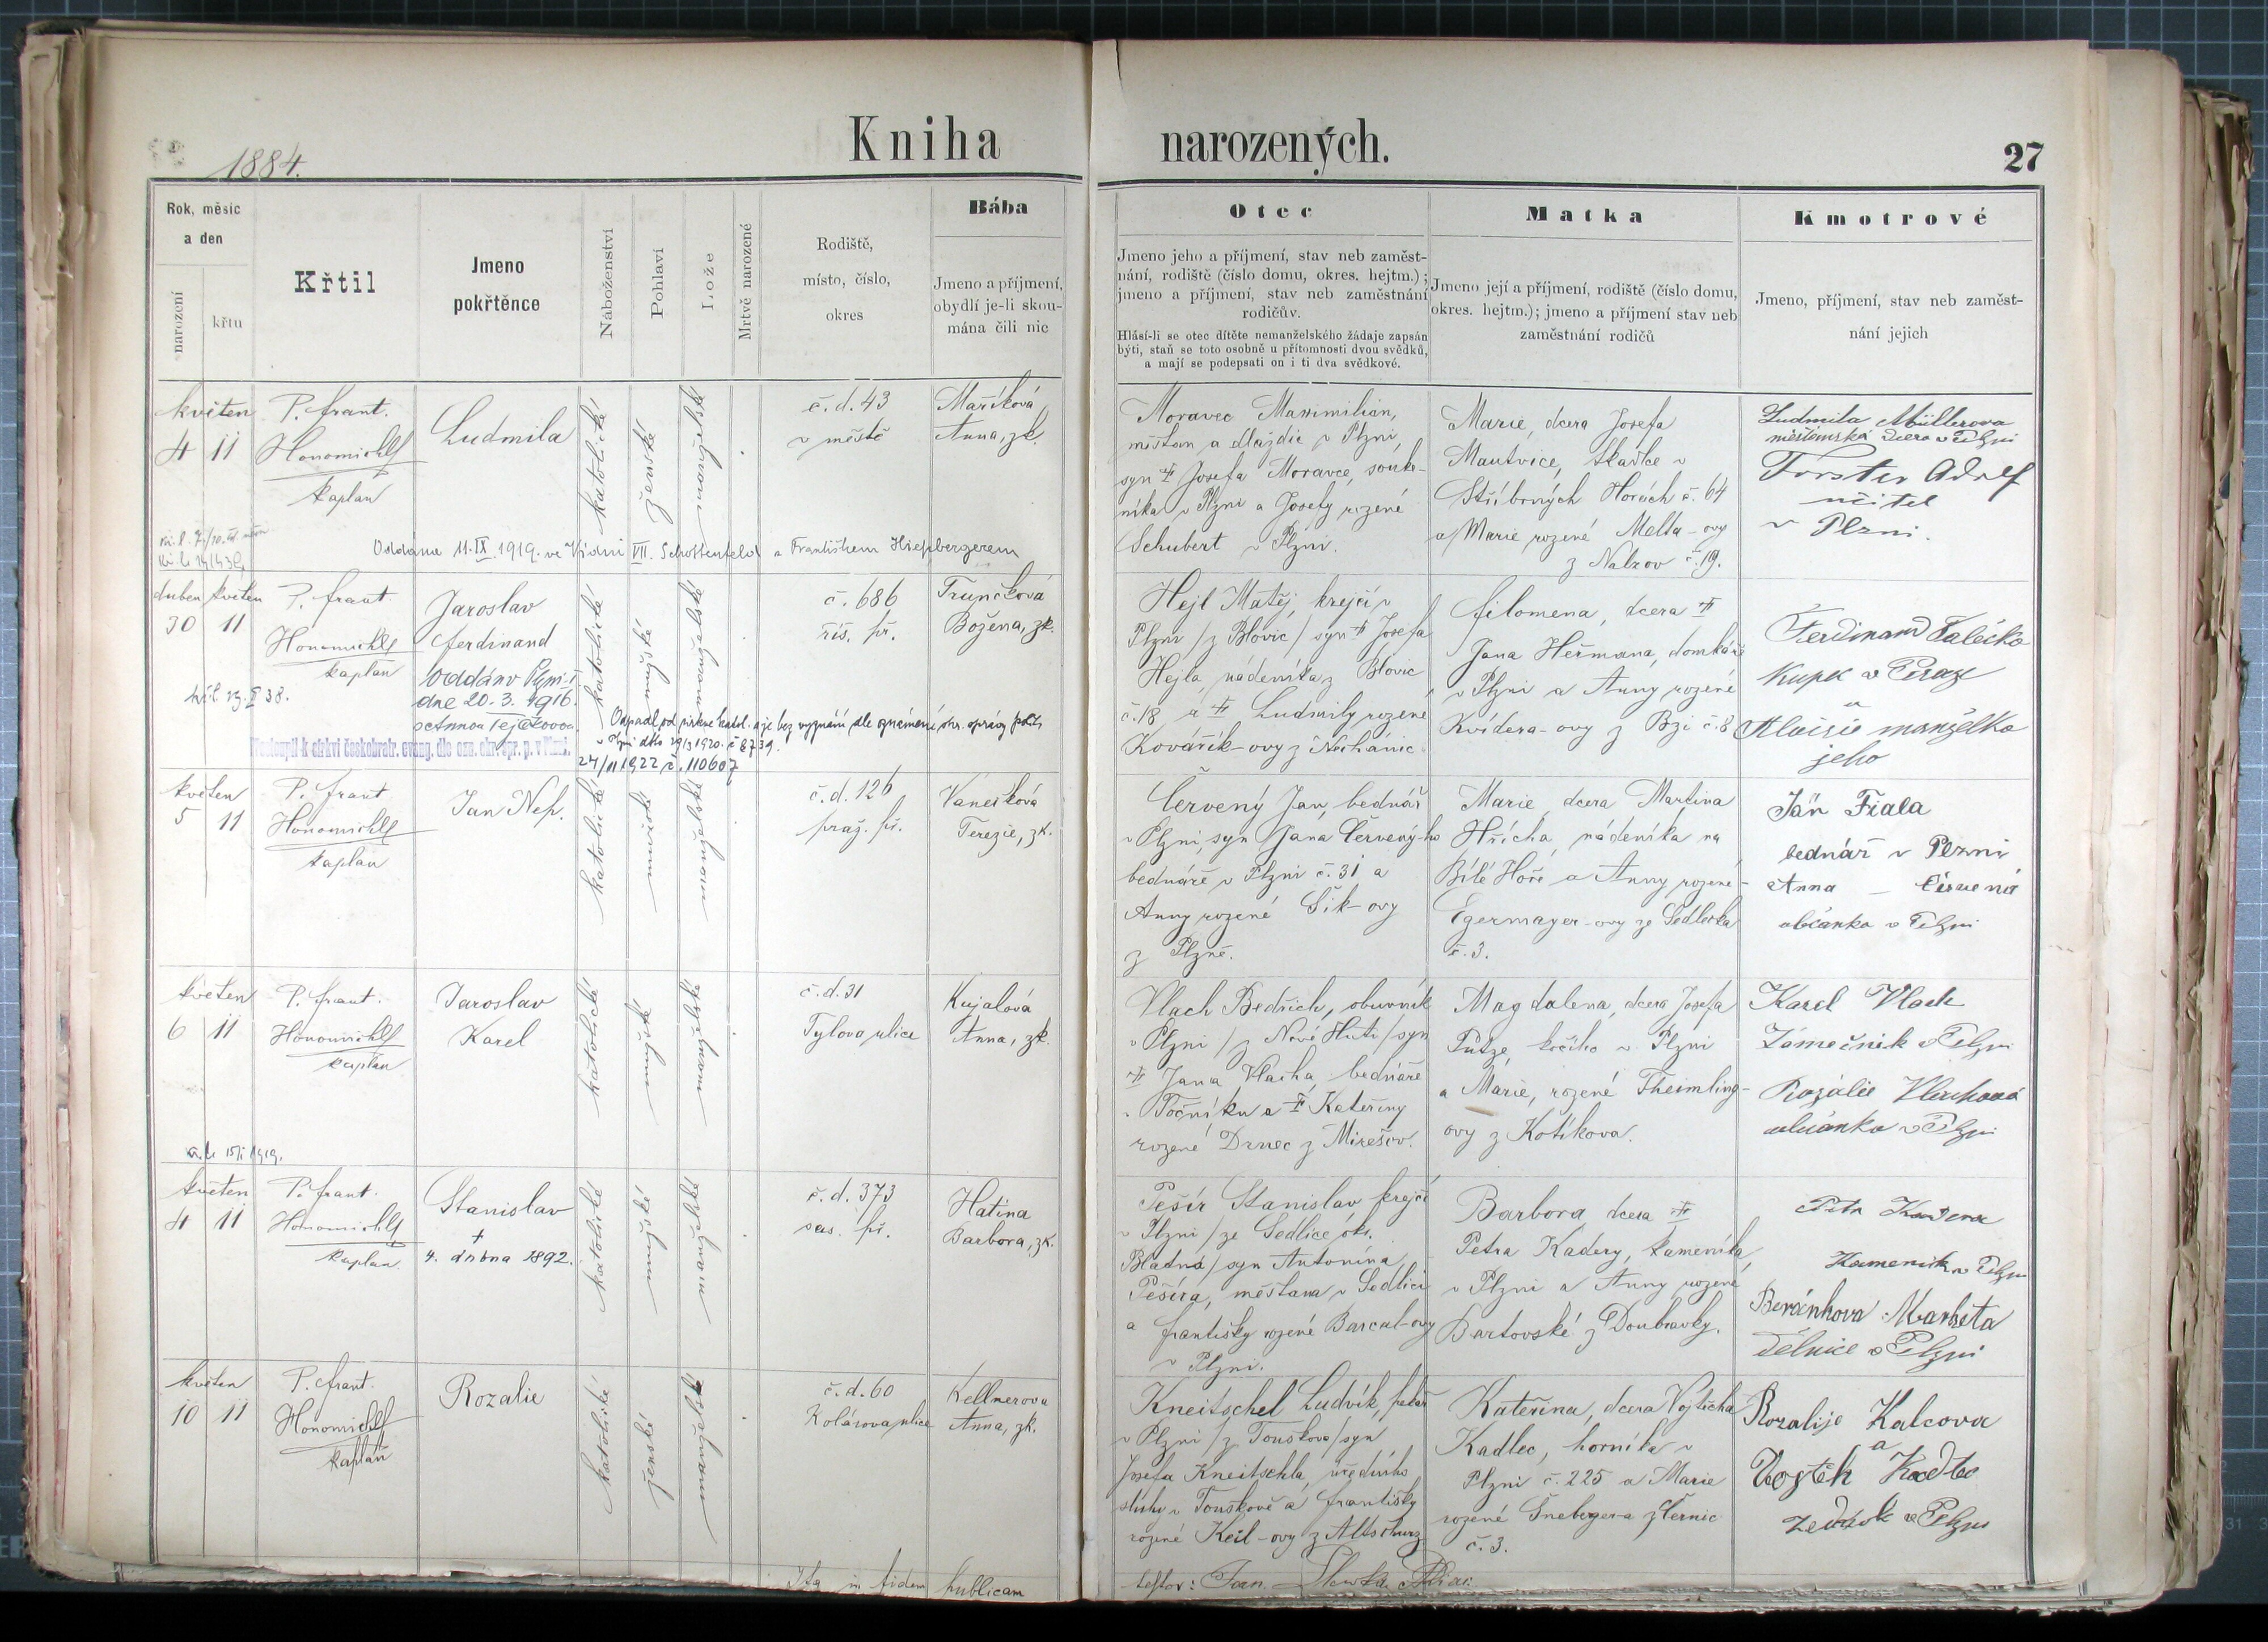 Kniha narozených.
1884.
27
Rok, měsíc
a den
narození
křtu
Křtil
Jmeno
pokřtěnce
Náboženství
Pohlaví
Lože
Mrtvě narozené
Rodiště,
místo, číslo,
okres
Bába
Jmeno a příjmení,
obydlí je-li skou-
mána čili nic
Otec
Jmeno jeho a příjmení, stav neb zaměst-
nání, rodiště (číslo domu, okres. hejtm.);
jmeno a příjmení, stav neb zaměstnání
rodičův.
Hlásí-li se otec dítěte nemanželského žádaje zapsán
býti, staň se toto osobně u přítomnosti dvou svědků,
a mají se podepsati on i ti dva svědkové.
Matka
Jmeno její a příjmení, rodiště (číslo domu,
okres. hejtm.); jmeno a příjmení stav neb
zaměstnání rodičů
Kmotrové
Jmeno, příjmení, stav neb zaměst-
nání jejich
květen
4 11
P. Frant.
Honomichl
kaplan
Ludmila
katolické
ženské
manželské
č. d. 43
v městě
Maříková
Anna, zk.
Moravec Maximilian,
měšťan a dlaždič v Plzni,
syn † Josefa Moravce, souke-
níka v Plzni a Josefy rozené
Schubert v Plzni.
Marie, dcera Josefa
Mautvice, tkadlce v
Stříbrných Horách č. 64
a Marie rozené Melta-ovy
z Nalžov č. 19.
Ludmila Müllerova
měšťanská dcera v Plzni
Forster Adolf
učitel
v Plzni.
Oddána 11. IX. 1919. ve Vídni VII. Schottenfeld s Františkem Hiepbergerem
duben květen
30 11
P. Frant.
Honomichl
kaplan
Jaroslav
Ferdinand
Oddáno Plzni
dne 20. 3. 1916.
katolické
mužské
manželské
č. 686
řís. př.
Trunčková
Božena, zk.
Odpadl od církve katol. a je bez vyznání dle oznámení okr. správy polit.
v Plzni dto 29/3 1920. č 8739.
Vstoupil k církvi českobratr. evang. dle ozn. okr. spr. p. v Plzni.
24/11 1922 č. 110607
Hejl Matěj, krejčí v
Plzni /z Blovic/ syn † Josefa
Hejla, nádeníka z Blovic
č. 18, a † Ludmily rozené
Kovářík-ovy z Nechánic
Filomena, dcera †
Jana Heřmana, domkáře
v Plzni a Anny rozené
Kvídera-ovy z Bzi č. 8
Ferdinand Falečka
Kupec v Praze
a
Aloisie manželka
jeho
květen
5 11
P. Frant
Honomichl
kaplan
Jan Nep.
katolické
mužské
manželské
č. d. 126
praž. př.
Vanečková
Terezie, zk.
Červený Jan, bednář
v Plzni, syn Jana Červený-ho
bednáře v Plzni č. 31 a
Anny rozené Šik-ovy
z Plzně.
Marie, dcera Martina
Hřícha, nádeníka na
Bílé Hoře a Anny rozené
Egermayer-ovy ze Sedlecka
č. 3.
Jan Fiala
bednář v Plzni
Anna Červená
občanka v Plzni
květen
6 11
P. Frant.
Honomichl
kaplan
Jaroslav
Karel
katolické
mužské
manželské
č. d. 31
Tylova ulice
Kujalová
Anna, zk.
Vlach Bedřich, obuvník
v Plzni /z Nové Huti/ syn
† Jana Vlacha, bednáře
v Točníku a † Kateřiny
rozené Drnec z Mirešov.
Magdalena, dcera Josefa
Putze, kočího v Plzni
a Marie, rozené Theimling-
ovy z Kotíkova.
Karel Vlach
Zámečník v Plzni
Rozálie Vlachová
občanka v Plzni
květen
4 11
P. Frant.
Honomichl
kaplan.
Stanislav
†
4. dubna 1892.
katolické
mužské
manželské
č. d. 373
sas. př.
Hatina
Barbora, zk.
Pešír Stanislav, krejčí
v Plzni /ze Sedlice ok.
Blatná/ syn Antonína
Pešíra, měšťana v Sedlici
a Františky rozené Barcal-ovy
v Plzni.
Barbora, dcera †
Petra Kadery, kameníka,
v Plzni a Anny rozené
Bartovské z Doubravky.
Petr Kadera
Kameník v Plzni
Beránkova Markéta
Dělnice v Plzni
květen
10 11
P. Frant.
Honomichl
kaplan
Rozalie
katolické
ženské
manželské
č. d. 60
Kolárova ulice
Kellnerova
Anna, zk.
Kneitschel Ludvík, pekař
v Plzni /z Touškova/ syn
Josefa Kneitschla, úředního
sluhy v Touškově a Františky
rozené Keil-ovy z Altschurz
Kateřina, dcera Vojtěcha
Kadlec, horníka v
Plzni č. 225 a Marie
rozené Šneberger-a z Černic
č. 3.
Rozalije Kalcova
a
Vojtěch Kadlec
zedník v Plzni
Ita in fidem publicam
testor: Joan.